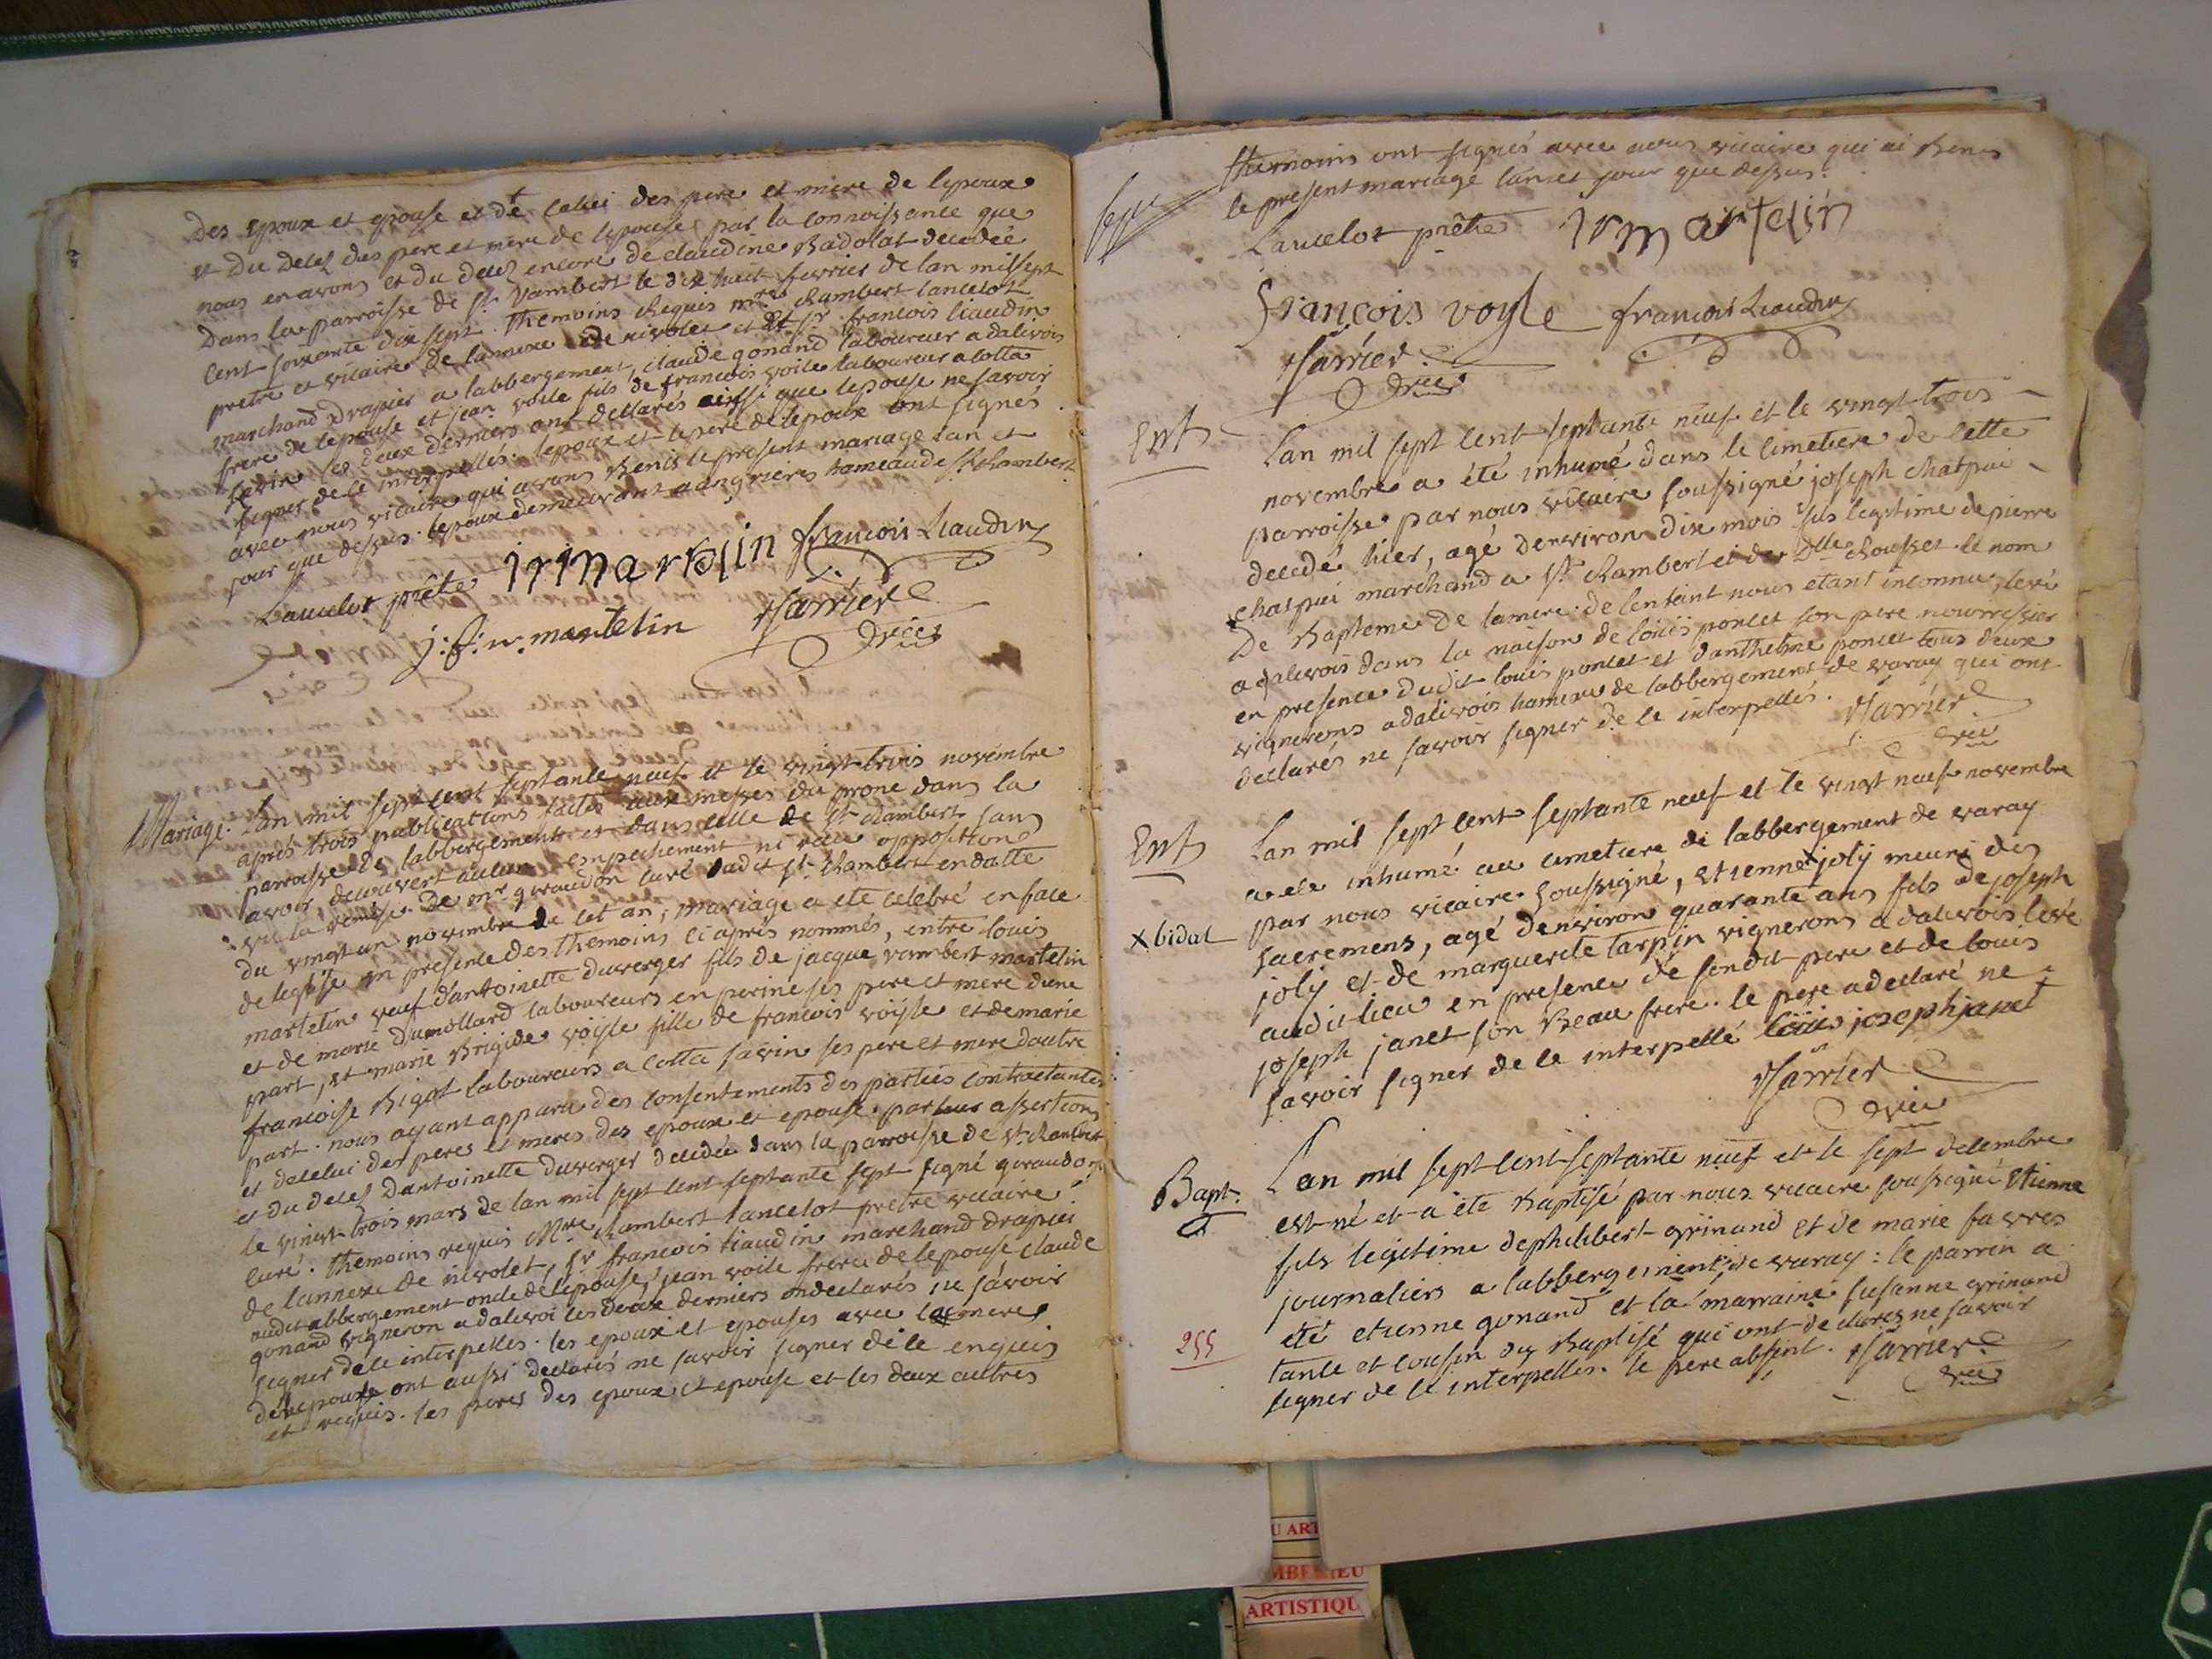 Des epoux et epouse et de celui des pere et mere de lepoux
et du decez des pere et mere de lepouse par la connoissance que
nous en avons et du decez encore de claudine Badolat decedée
Dans la parroisse de st Rambert le dix huit fevrier de lan mil sept
cent soixante dix sept. themoins Requis mre Rambert lancelot
pretre et vicaire de lannexe de nivolet et sr francois liaudin
marchand Drapier a labbergement, claude gonand laboureur a dalivois
frere de lepouse et jean voile fils de francois voile laboureur a cotta
savin les deux derniers ont declarés ainssi que lepouse ne savoir
signer de ce interpellés. lepoux et le pere de lepoux ont signés
avec nous vicaire qui avons Benis le present mariage lan et
jour que dessus. lepoux demeurant a angrieres hameau de st Rambert
Lancelot prêtre françois Liaudin
martelin Varrier
vice
Mariage. Lan mil sept cent septante neuf et le vingt trois novembre
aprés trois publications faites aux messes du prone dans la
parroisse de labbergement et dans celle de st Rambert sans
avoir decouvert aucun empechement ni recu opposition
vu la remise de mr giraudon curé dudit st Rambert en datte
du vingt un novembre de cet an, mariage a eté celebré en face
de leglise en presence des themoins ci aprés nommés, entre louis
martelin veuf dantoinette duverger fils de jacque rambert martelin
et de marie dumollard laboureurs en perine ses pere et mere dune
part, et marie Brigide voÿle fille de francois voiÿle et de marie
francoise Bigot laboureurs a cotta savin ses pere et mere dautre
part. nous ayant apparu des consentements des parties contractantes
et de celui des peres et meres des epoux et epouse par leur assertions
et du decez dantoinette duverger decedée dans la parroisse de st Rambert
le vingt trois mars de lan mil sept cent septante sept signé giraudon
curé. themoins requis Mre Rambert lancelot pretre vicaire
de lannexe de nivolet, sr francois liaudin marchand drapier
audit abbergement oncle de lepouse, jean voile frere de lepouse claude
gonand vigneron a dalivoi les deux derniers on declarés ne sàvoir
signer de ce interpellés. les epoux et epouses avec la mere
de lepouse ont aussi declarés ne savoir signer de ce enquis
et requis. les peres des epoux et epouse et les deux autres
themoins ont signés avec nous vicaire qui ai Benis
le present mariage lan et jour que dessus.
Lancelot prêtre
françois voyle françois Liaudin
Varrier
vice
Ent Lan mil sept cent septante neuf et le vingt trois
novembre a été inhumé dans le cimetiere de cette
parroisse par nous vicaire soussigné joseph chatpui
decedé hier, agé denviron dix mois fils legitime de pierre
chatpui marchand a st Rambert et de Dlle chousset le nom
De Bapteme de la mere de lenfant nous etant inconnu, levé
a dalivois dans la maison de loüis poncet son pere nourrissier
en presence dudit louis poncet et danthelme poncet tous deux
vignerons a dalivois hameau de labbergement de varay qui ont
declarés ne savoir signer de ce interpellés. Varrier
vice
Ent Lan mil sept cent septante neuf et le vingt neuf novembre
a eté inhumé au cimetiere de labbergement de varay
par nous vicaire soussigné, etienne x joly muni des
x bidat
sacremens, agé denviron quarante ans fils de joseph
joly et de marguerite tarpin vignerons a dalivois levé
audit lieu en presence de sondit pere et de louis
joseph janet son Beau frere. le pere a declaré ne
savoir signer de ce interpellé loüis joseph janet
Varrier
vice
Bapt. Lan mil sept cent septante neuf et le sept decembre
est né et a été Baptisé par nous vicaire soussigné etienne
fils legitime de philibert grinand et de marie favres
journaliers a labbergement de varay: le parrin a
été etienne gonand et la marraine susanne grinand
tante et cousin du Baptisé qui ont declarés ne savoir
255
signer de ce interpellés. le pere absent. Varrier
vice
ARTISTIQU